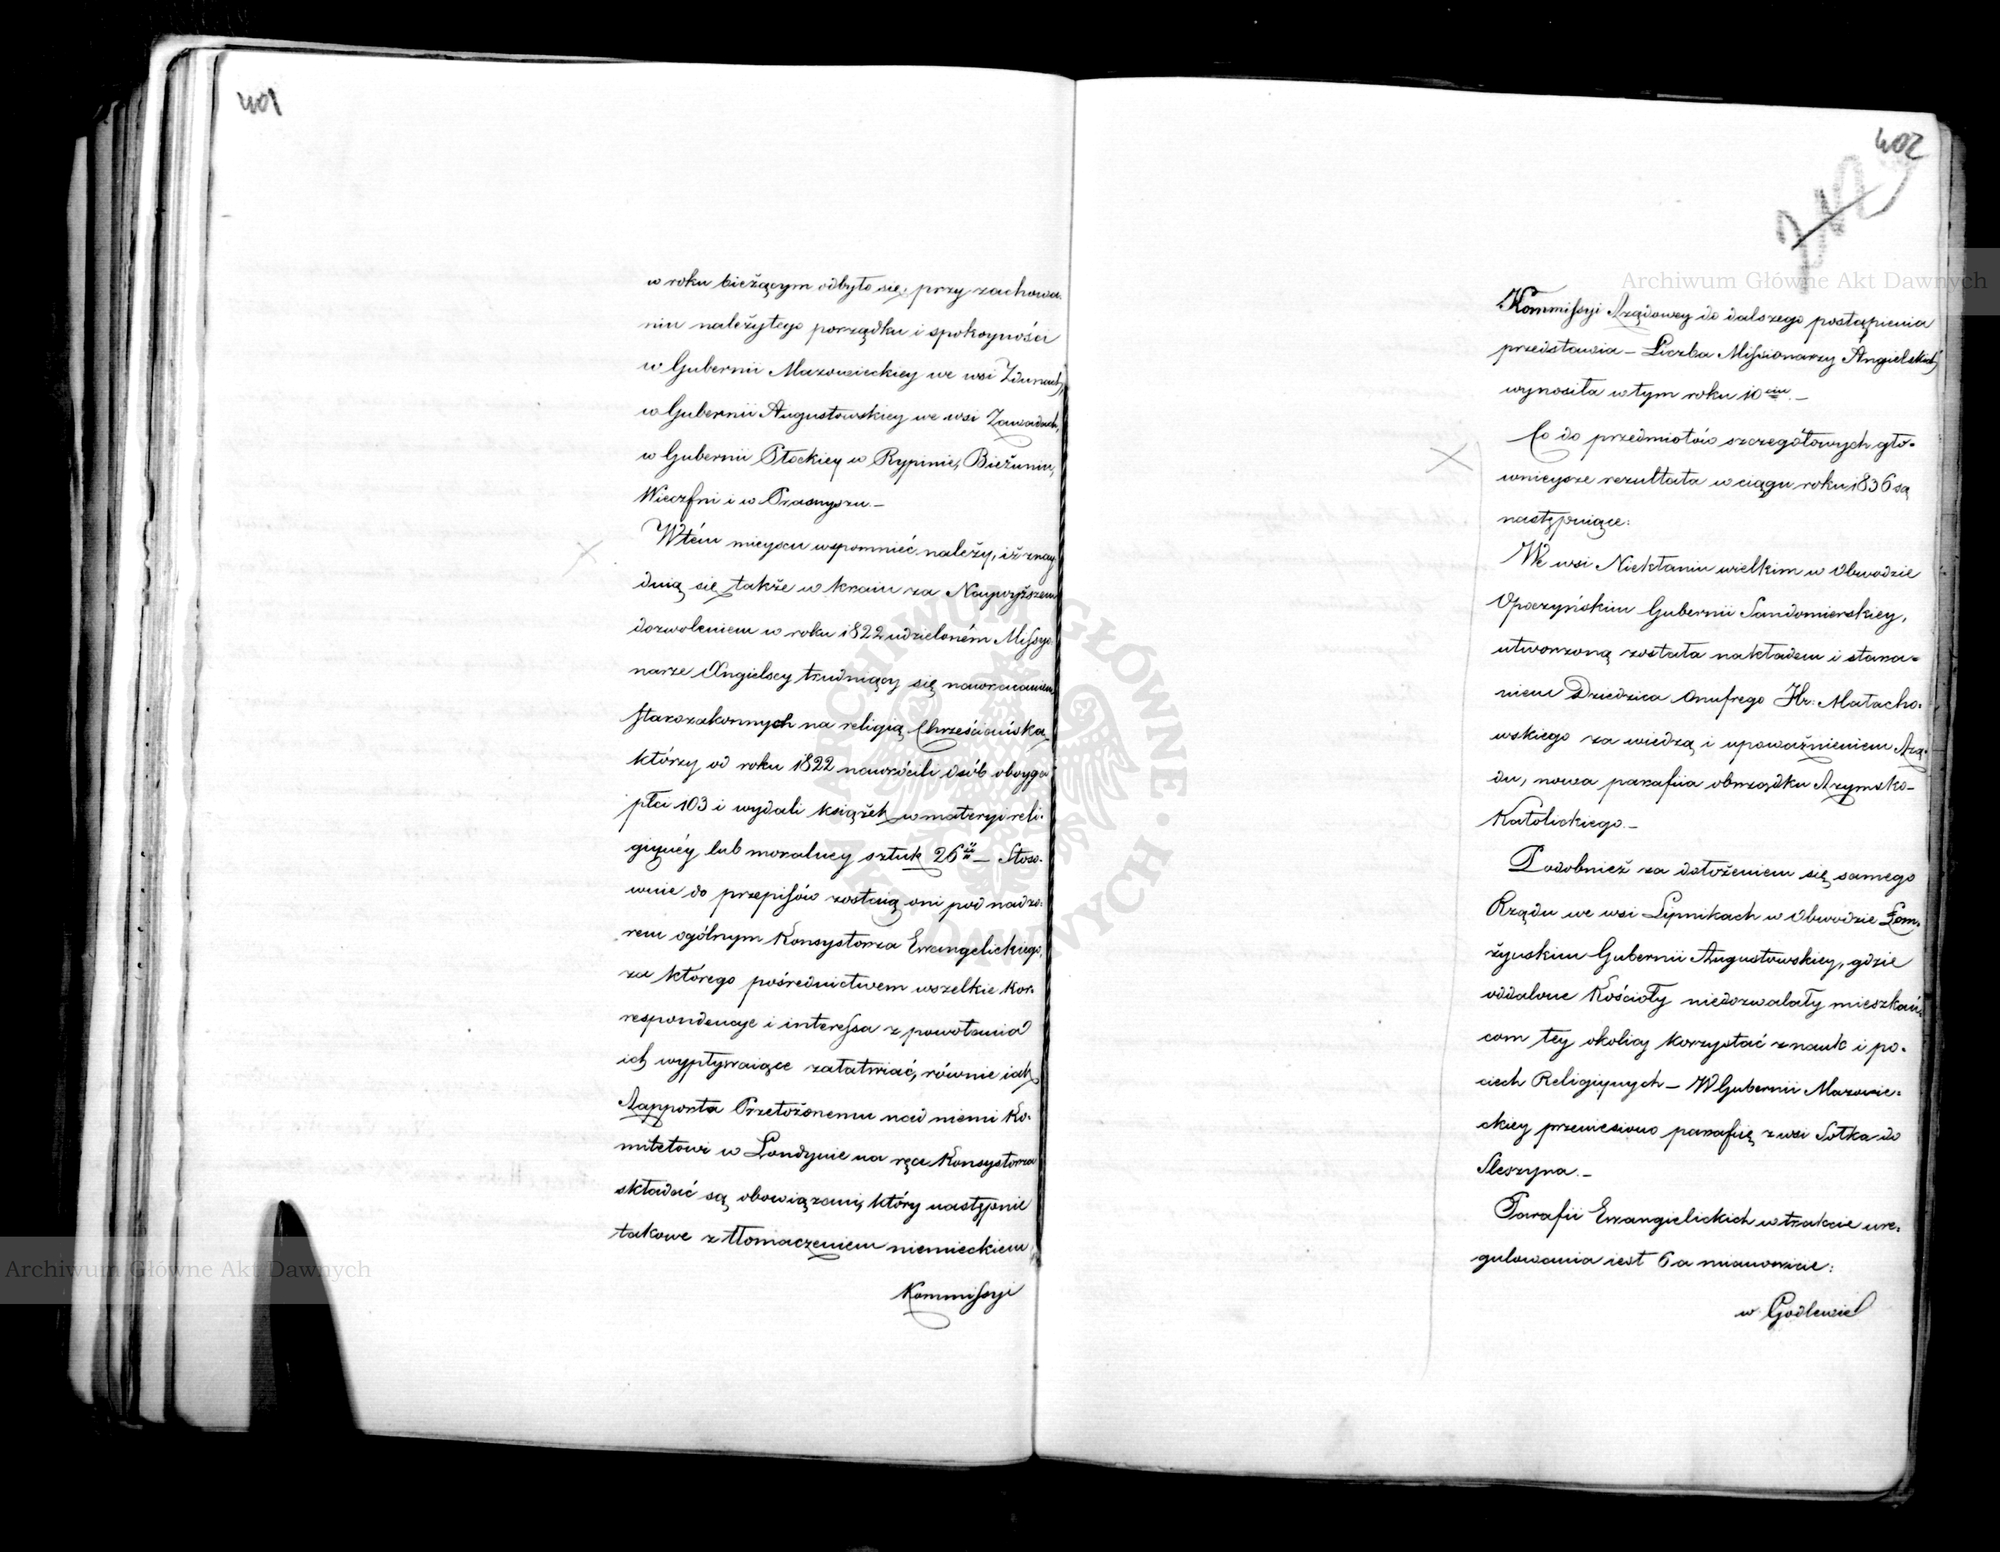 401
w roku bieżącym odbyło się, przy zachowa-
niu należytego porządku i spokoyności
w Gubernii Mazowieckiey we wsi Zdunach,
w Gubernii Augustowskiey we wsi Zawadach,
w Gubernii Płockiey w Rypinie, Bieżuniu,
Wieczfni i w Prasnyszu.–
W tém mieyscu wspomnieć należy, iż znay
duią się także w kraiu za Naywyższem
dozwoleniem w roku 1822 udzieloném Missyo
narze Angielscy trudniący się nawracaniem
starozakonnych na religią Chrześciańską,
którzy od roku 1822 nawrócili osób oboyga
płci 103 i wydali książek w materyi reli-
giynéy lub moralney sztuk 26 – Stoso-
wnie do przepisów zostaią oni pod nadzo-
rem ogólnym Konsystorza Ewangelickiego,
za którego pośrednictwem wszelkie kor-
respondencye i interessa z powołania
ich wypływaiące załatwiać, równie iak
Rapporta Przełożonemu nad niemi Ko-
mitetowi w Londynie na ręce Konsystorza
składać są obowiązani, który następnie
takowe z tłomaczeniem niemieckiem
Kommissyi
402
Kommissyi Rządowey do dalszego postąpienia
przedstawia – Liczba Missionarzy Angielskich
wynosiła w tym roku 10 ciu –
Co do przedmiotów szczegółowych głó-
wnieysze rezultata w ciągu roku 1836 są
następuiące:
We wsi Niekłaniu wielkim w Obwodzie
Opoczyńskim Gubernii Sandomierskiey,
utworzoną została nakładem i stara-
niem Dziedzica Onufrego Hr: Małacho-
wskiego za wiedzą i upoważnieniem Rzą-
du, nowa parafiia obrządku Rzymsko-
Katolickiego.–
Podobnież za dołożeniem się samego
Rządu we wsi Lipnikach w Obwodzie Łom-
żyńskim Gubernii Augustowskiey, gdzie
oddalone Kościoły niedozwalały mieszkań-
com tey okolicy korzystać z nauk i po-
ciech Religiynych – W Gubernii Mazowie-
ckiey przeniesiono parafiię z wsi Sołka do
Sleszyna.–
Parafii Ewangielickich w trakcie ure-
gulowania iest 6 a mianowicie:
w Godlewie
Archiwum Główne Akt Dawnych
Archiwum Główne Akt Dawnych
ARCHIWUM GŁÓWNE AKT DAWNYCH